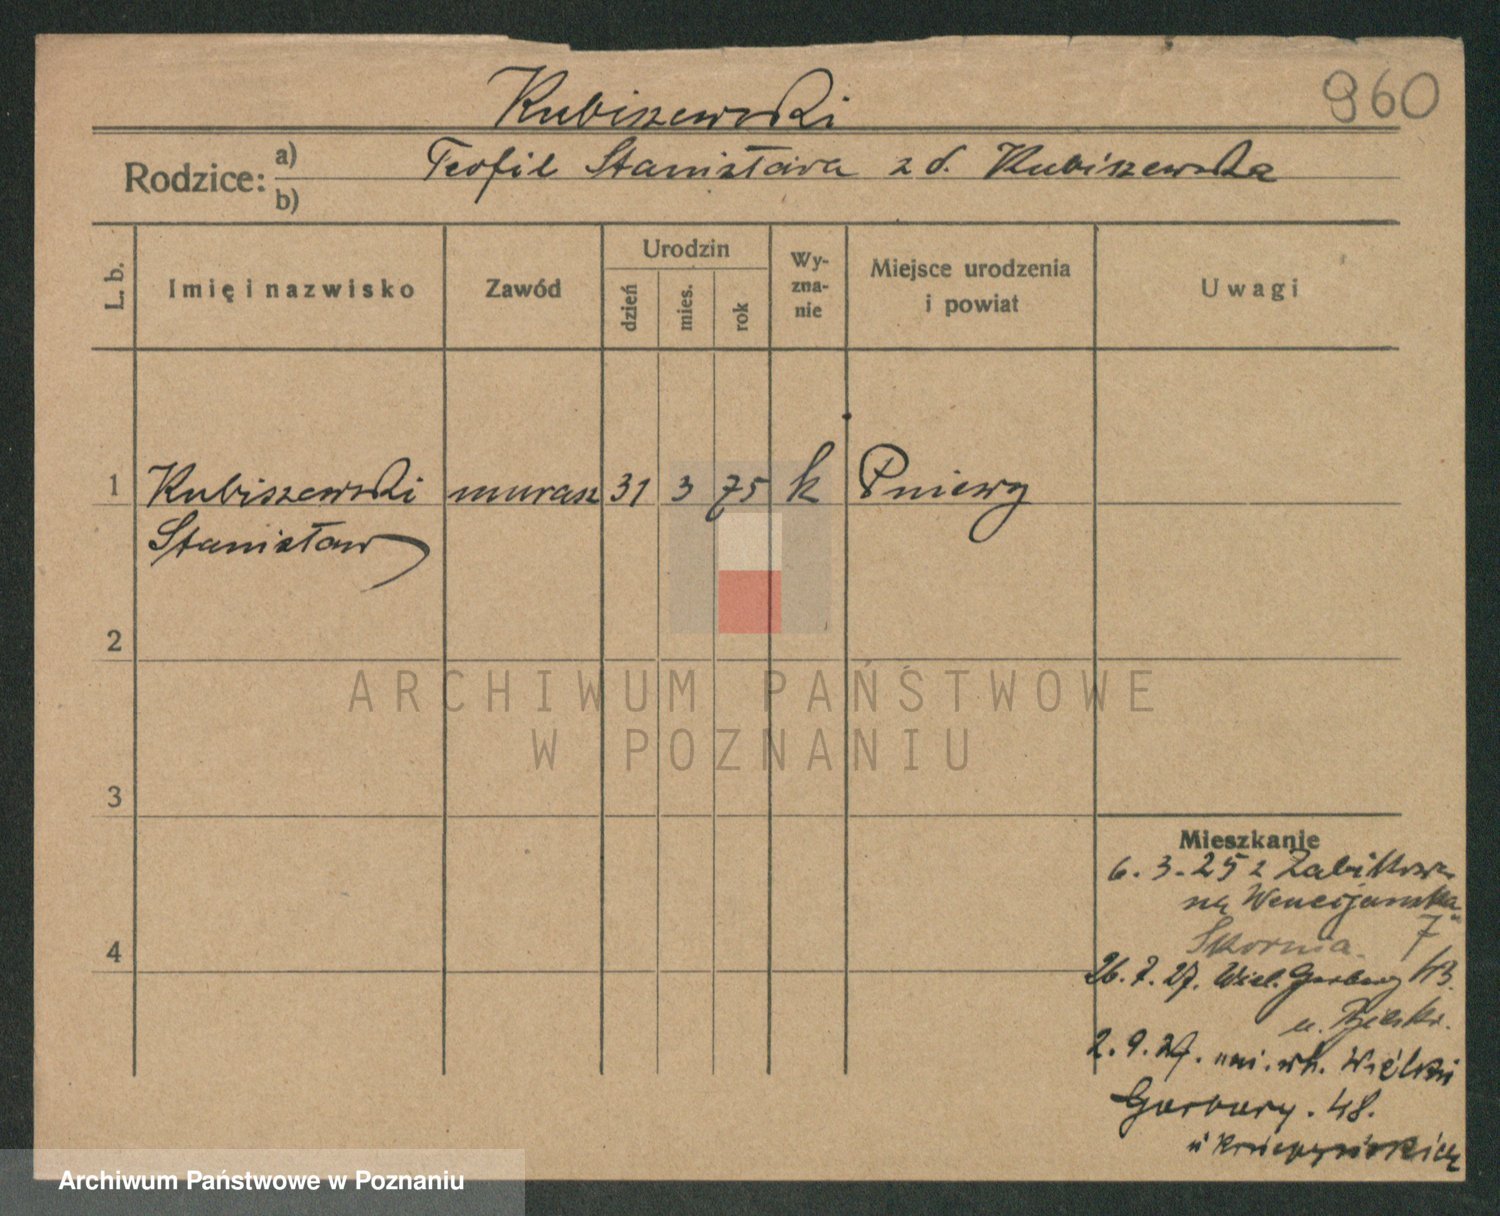 960
Kubiszewski
Rodzice: a) Teofil Stanisława z d. Kubiszewska
b)
L. b. Imię i nazwisko Zawód Urodzin dzień mies. rok Wy-zna-nie Miejsce urodzenia i powiat Uwagi
1 Kubiszewski murarz 31 3 75 k Pniewy
Stanisław
2
ARCHIWUM PAŃSTWOWE
W POZNANIU
3
Mieszkanie
6.3.25 z Żabikowa
na Wenecjańska
7
4
26.7.27. Wiel. Garbary 43.
2.9.27.
Garbary. 48.
Archiwum Państwowe w Poznaniu